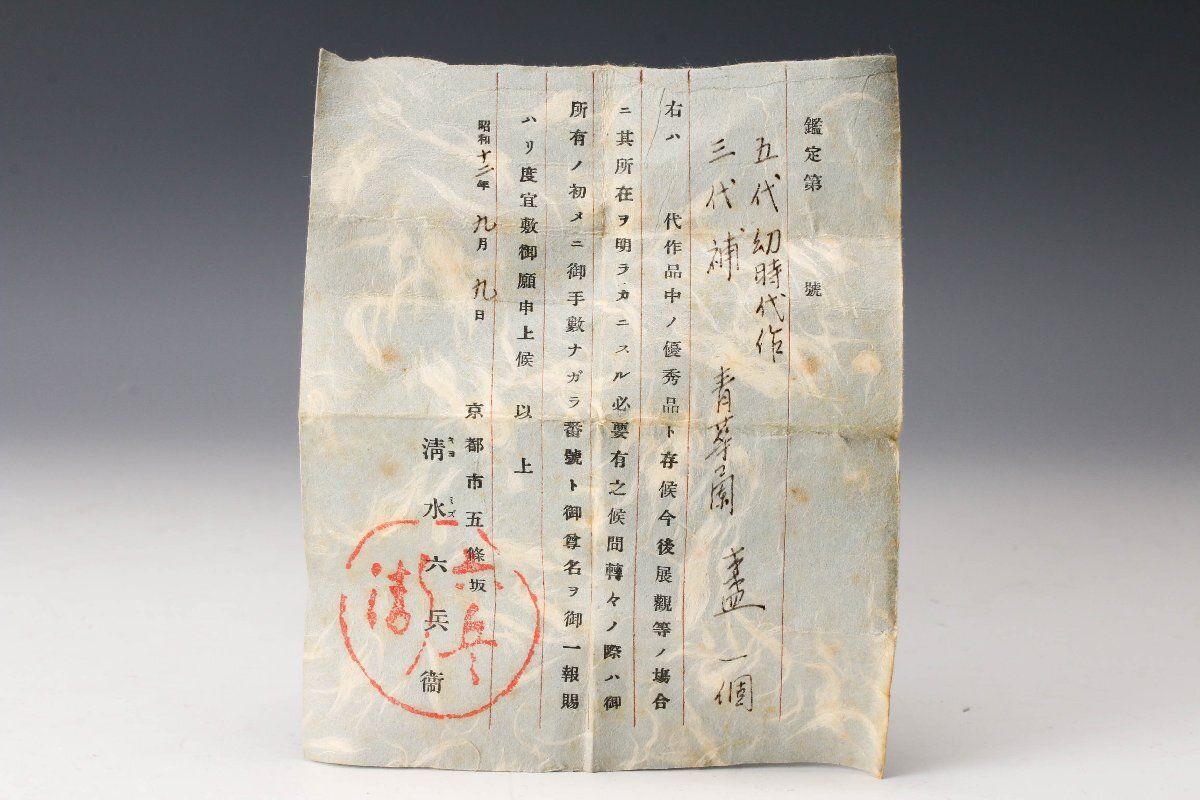 鑑定第　　號
五代幼時代作
三代補　青華蘭　盡　一個
右ハ　　代作品中ノ優秀品ト存候今後展觀等ノ塲合
ニ其所在ヲ明ラカニスル必要有之候間轉々ノ際ハ御
所有ノ初メニ御手數ナガラ番號ト御尊名ヲ御一報賜
ハリ度宜敷御願申上候　以上
昭和十二年九月九日
京都市五條坂
淸水六兵衞
キヨミズ
六兵
清